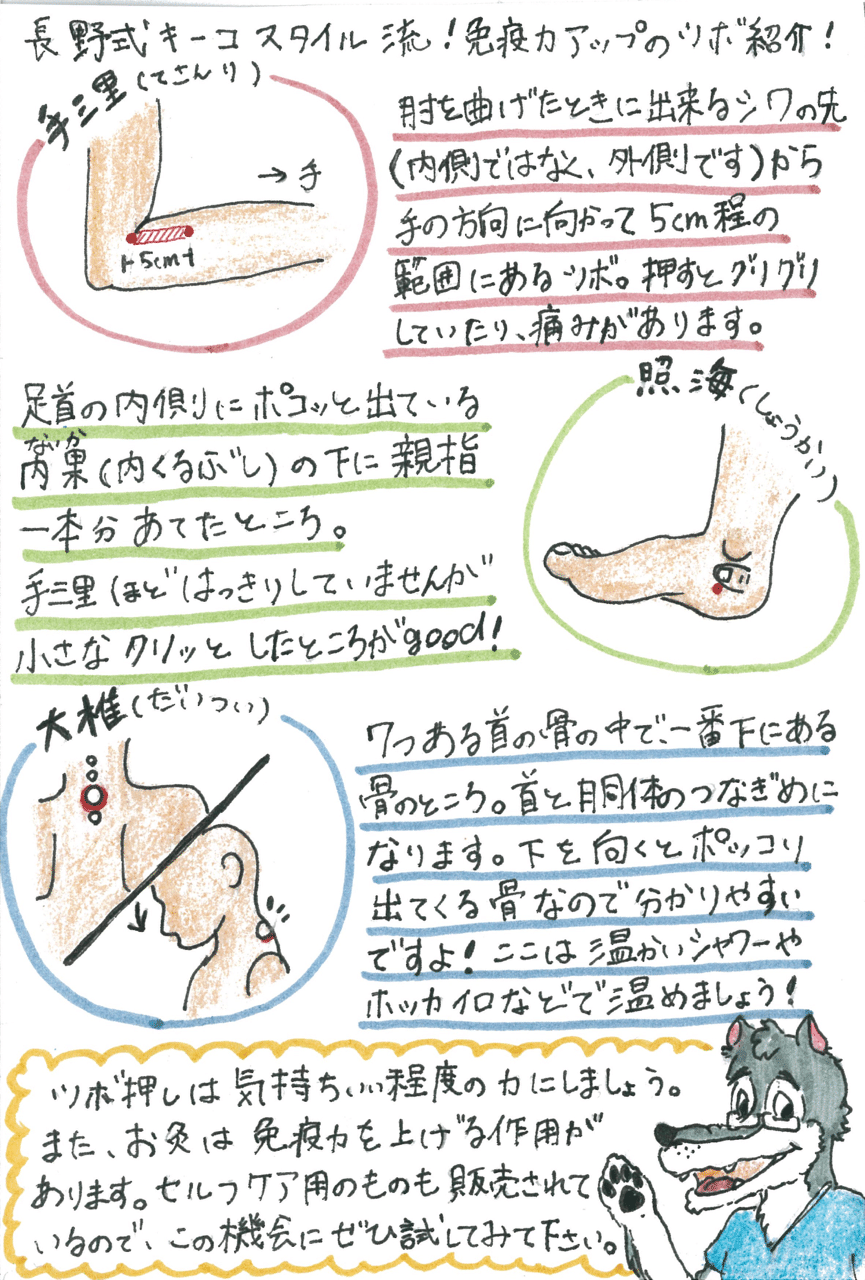 長野式キーコスタイル流！免疫力アップのツボ紹介！
手三里(てさんり)
→手
5cm
肘を曲げたときに出来るシワの先
(内側ではなく、外側です)から
手の方向に向かって5cm程の
範囲にあるツボ。押すとグリグリ
していたり、痛みがあります。
照海(しょうかい)
足首の内側にポコッと出ている
ないか
内果(内くるぶし)の下に親指
一本分あてたところ。
手三里ほどはっきりしていませんが
小さなクリッとしたところがgood!
大椎(だいつい)
7つある首の骨の中で、一番下にある
骨のところ。首と胴体のつなぎめに
なります。下を向くとポッコリ
出てくる骨なので分かりやすい
ですよ！ここは温かいシャワーや
ホッカイロなどで温めましょう！
ツボ押しは気持ちいい程度の力にしましょう。
また、お灸は免疫力を上げる作用が
あります。セルフケア用のものも販売されて
いるので、この機会にぜひ試してみて下さい。